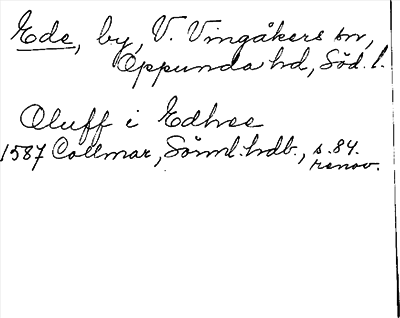 Ede, by, V. Vingåkers sn,
Oppunda hd, Söd. l.
Oluff i Edhee
1587 Collmar, Sörml. hdb., s. 84.
renov.